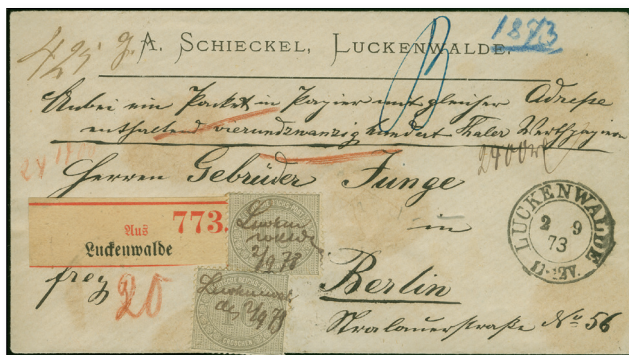 425 g.
A. SCHIECKEL, LUCKENWALDE.
1873
Anbei ein Packet in Papier mit gleicher Adresse
enthaltend vierundzwanzig hundert Thaler Werthpapiere
2400
Herren Gebrüder Junge
in
Berlin
Stralauerstraße No 56
773.
Aus
Luckenwalde
frey
20
Lucken
walde
2/9 73
Luckenwal
de 2/9 73
GROSCHEN
LUCKENWALDE
2 9
73
11-12V.